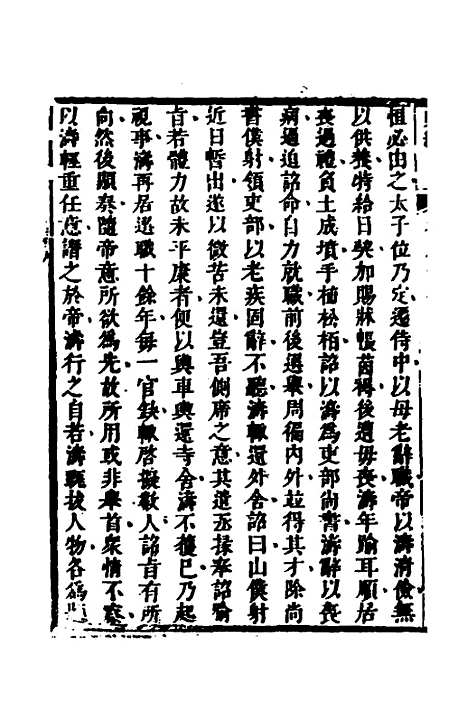 恒必由之太子位乃定遷侍中以母老辭職帝以濤清儉無
以供養特給日契加賜牀帳茵褥後遭母喪濤年踰耳順居
喪過禮負土成墳手植松栢詔以濤為吏部尚書濤辭以喪
病逼迫詔命自力就職前後選舉周徧內外並得其才除尚
書僕射領吏部以老疾固辭不聽濤輒還外舍詔曰山僕射
近日暫出遂以微苦未還豈吾側席之意其遣丞掾奉詔諭
旨若體力故未平康者便以輿車輿還寺舍濤不獲已乃起
視事濤再居選職十餘年每一官缺輒啓擬數人詔旨有所
向然後顯奏隨帝意所欲為先故所用或非舉首衆情不察
以濤輕重任意譖之於帝濤行之自若濤甄拔人物各為